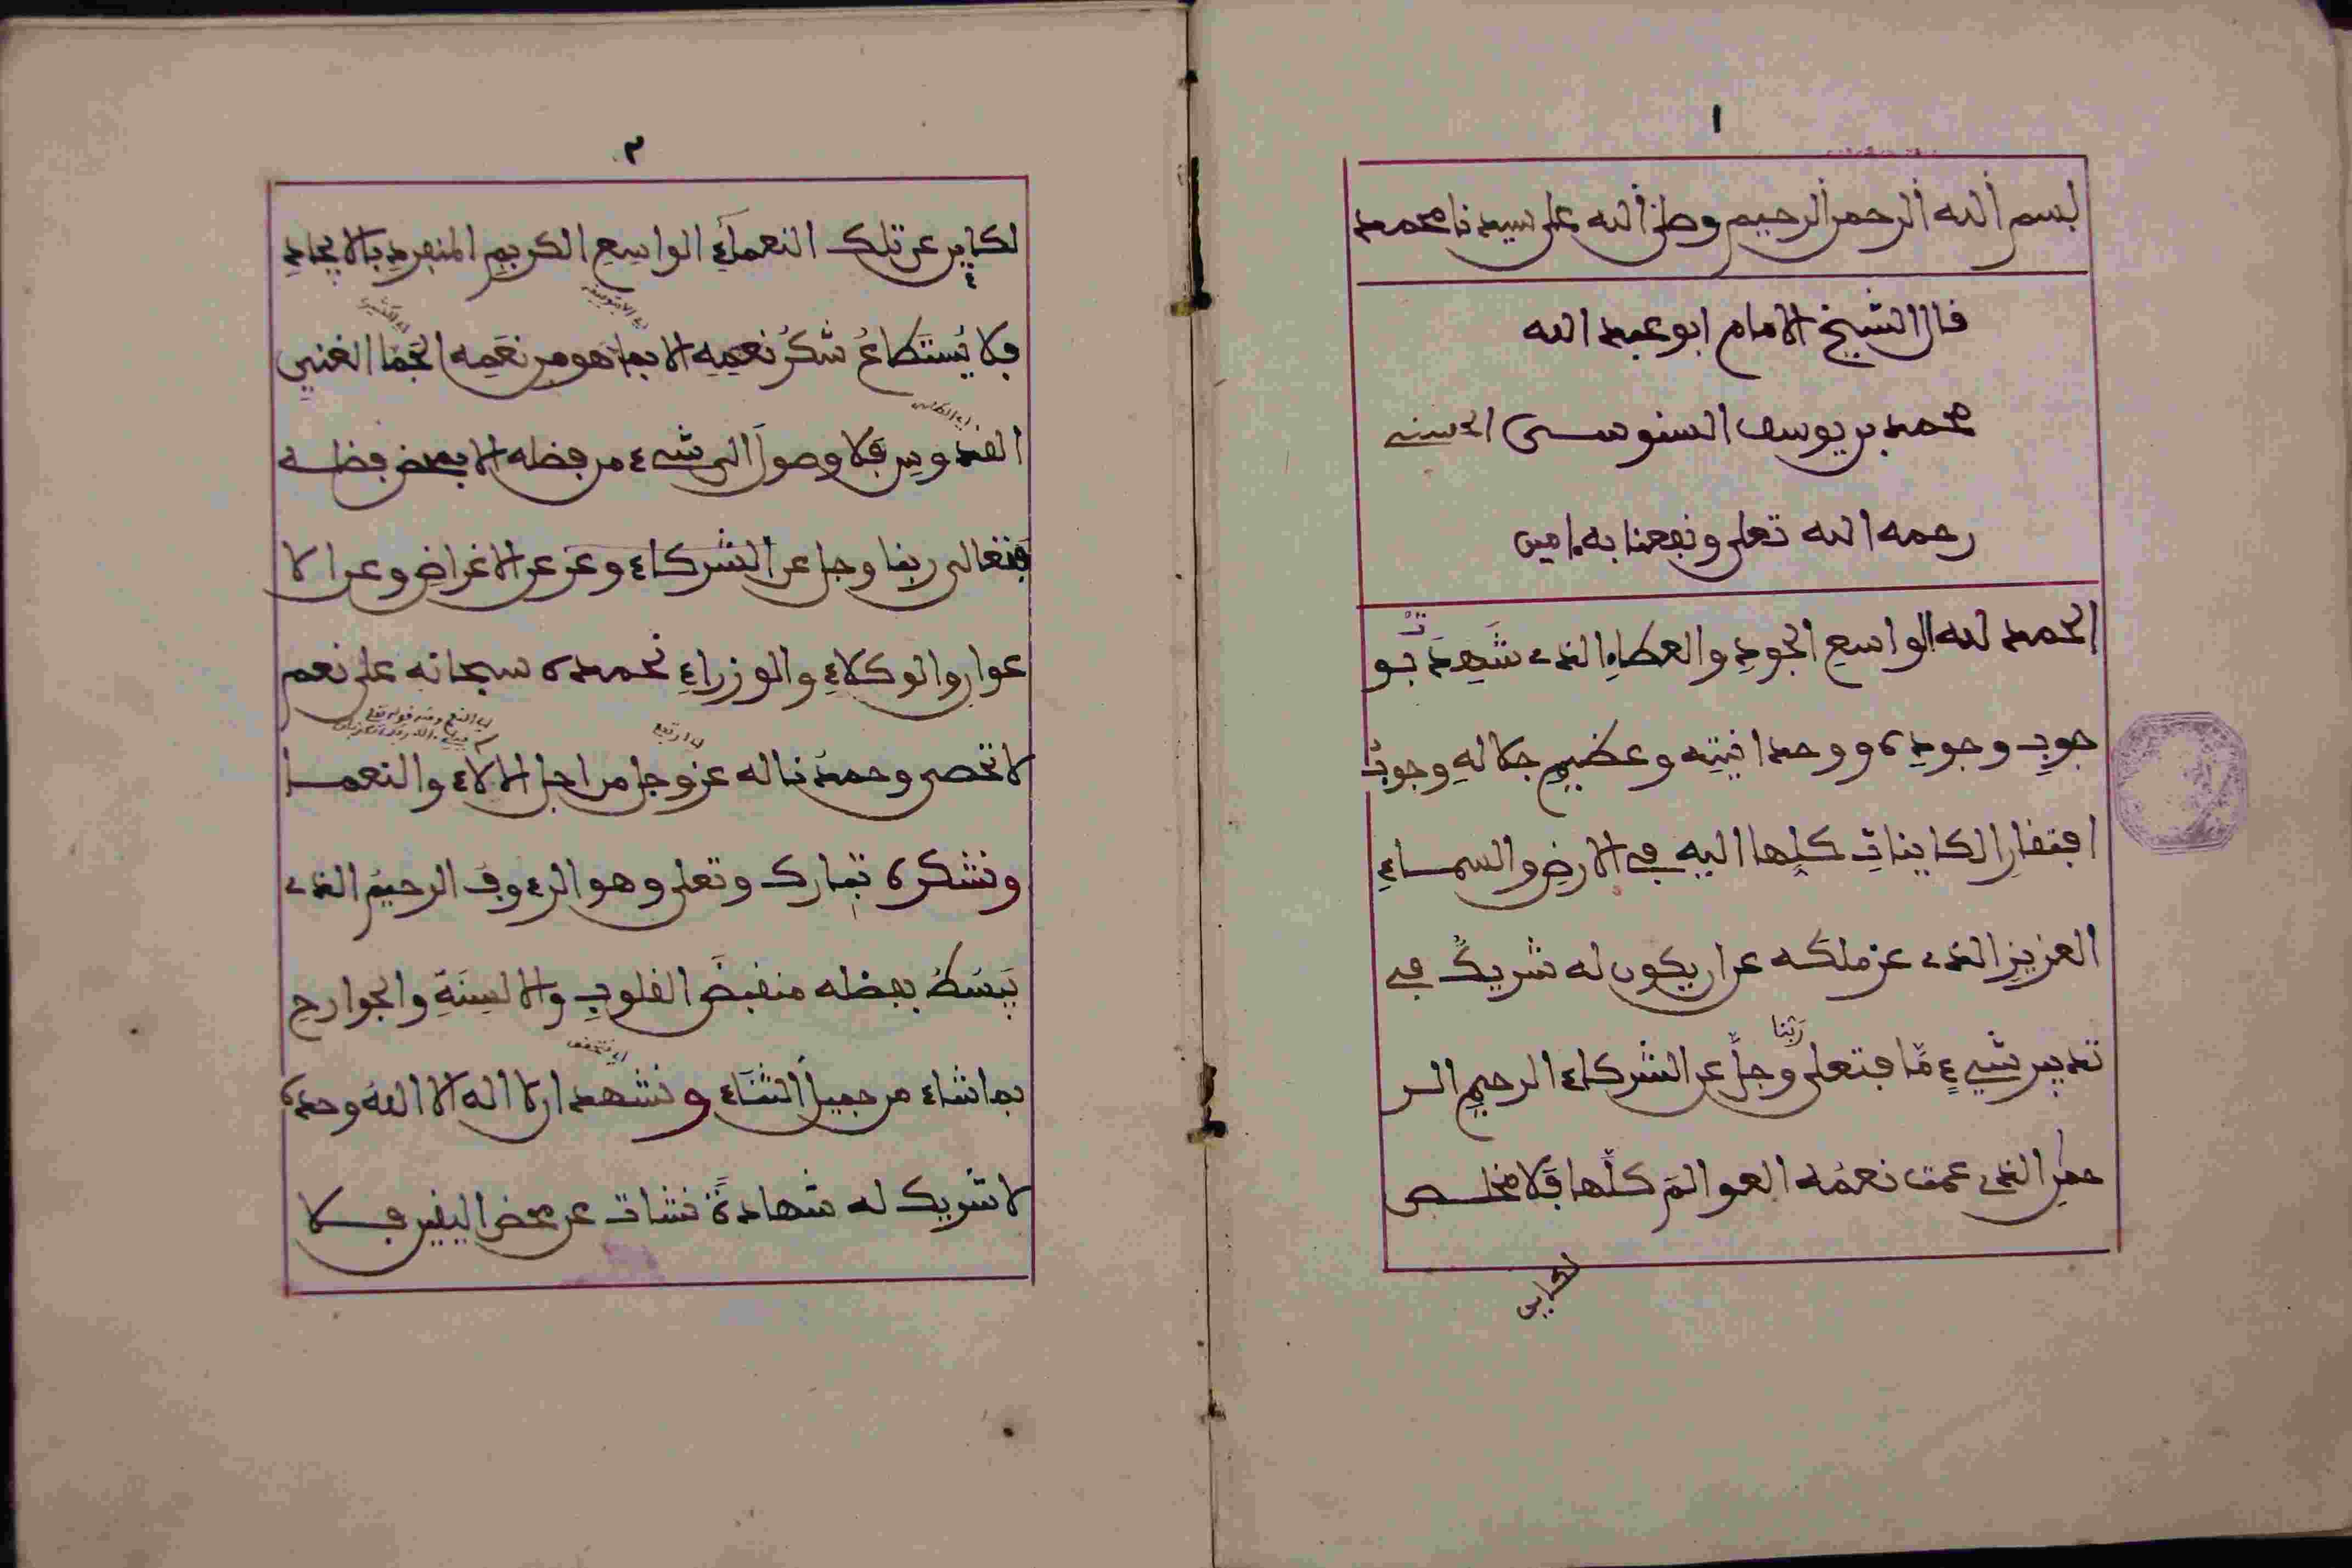 ١
بسم الله الرحمن الرحيم وصلى الله على سيدنا محمد
قال الشيخ الامام ابو عبد الله
محمد بن يوسف السنوسى الحسنى
رحمه الله تعلى ونفعنا به ءامين
الحمد لله الواسع الجودِ والعطاءِ الذى شَهِدَتْ بو
جوبِ وجودِه ووحدانيتِه وعظيمِ جلالهِ وجوبُ
افتقارِ الكايناتِ كلِّها اليه فى الارضِ والسمــاءِ
العزيزِ الذى عز ملكه عن ان يكون له شريكٌ فى
تدبير شىءٍ مّا فتعلى ربّنا وجلَّ عن الشركاء الرحيم الر
حمنِ الذى عمت نعمُه العوالمَ كلَّها فلا مخلــص
لكاين
٢
لكاينٍ عن تلك النعمآءِ الواسِعِ الكريمِ المنفردِ بالايجادِ
فلا يُستَطاعُ شكرُ نعمِهِ الا بما هو من نعَمِه الجمّا الغنيِ
القدوسِ فلا وصولَ الى شىء من فضله الا بمحض فضلــه
فتعالى ربنا وجل عن الشركاء وعز عن الاغراضِ وعن الا
عوان والوكلاءِ والوزراءِ نحمده سبحانه على نعم
لا تحصى وحمدُنا له عز وجل من اجل الالاء والنعمــا
ونشكره تبارك وتعلى وهو الرءوف الرحيم الذى
يَبسُطُ بفضله منقبضَ القلوبِ والالسِنَةِ والجوارحِ
بما شاء من جميل الثنَاء ونشهد ان لا اله الا الله وحده
لا شريك له شهادةً نشات عن محض اليقين فــلا